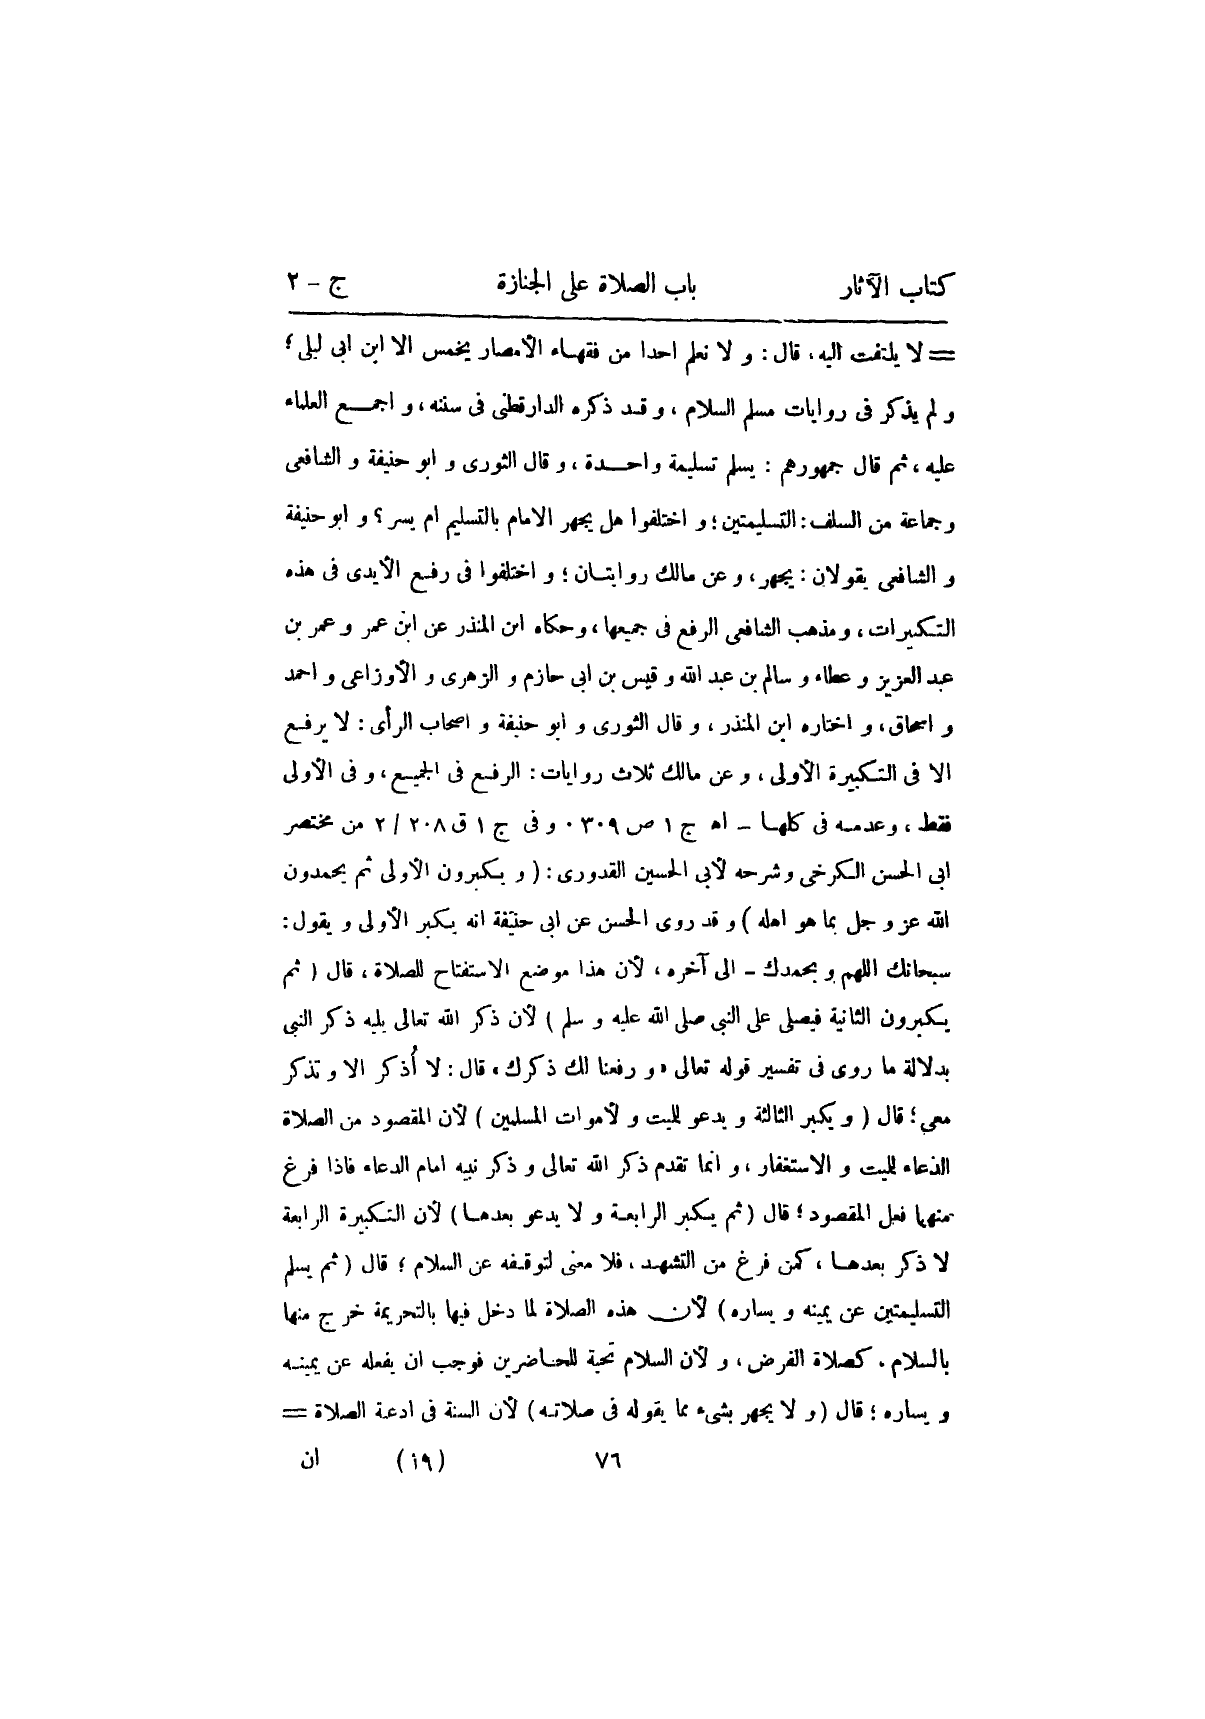 كتاب الآثار باب الصلاة على الجنازة ج - ٢
= لا يلتفت اليه، قال: و لا نعلم احدا من فقهاء الأمصار يخمس الا ابن ابى ليلى؛
و لم يذكر فى روايات مسلم السلام، و قد ذكره الدارقطنى فى سننه، و اجمع العلماء
عليه، ثم قال جمهورهم: يسلم تسليمة واحدة، و قال الثورى و ابو حنيفة و الشافعى
و جماعة من السلف: التسليمتين؛ و اختلفوا هل يجهر الامام بالتسليم ام يسر؟ و ابو حنيفة
و الشافعى يقولان: يجهر، و عن مالك روايتان؛ و اختلفوا فى رفع الأيدى فى هذه
التكبيرات، و مذهب الشافعى الرفع فى جميعها، و حكاه ابن المنذر عن ابن عمر و عمر بن
عبد العزيز و عطاء و سالم بن عبد الله و قيس بن ابى حازم و الزهرى و الأوزاعى و احمد
و اسحاق، و اختاره ابن المنذر، و قال الثورى و ابو حنيفة و اصحاب الرأى: لا يرفع
الا فى التكبيرة الأولى، و عن مالك ثلاث روايات: الرفع فى الجميع، و فى الأولى
فقط، و عدمه فى كلها - اه ج ١ ص ٣٠٩ . و فى ج ١ ق ٢٠٨ / ٢ من مختصر
ابى الحسن الكرخى و شرحه لأبى الحسين القدورى: ( و يكبرون الأولى ثم يحمدون
الله عز و جل بما هو اهله ) و قد روى الحسن عن ابى حنيفة انه يكبر الأولى و يقول:
سبحانك اللهم و بحمدك - الى آخره، لأن هذا موضع الاستفتاح للصلاة، قال ( ثم
يكبرون الثانية فيصلى على النبى صلى الله عليه و سلم ) لأن ذكر الله تعالى يليه ذكر النبى
بدلالة ما روى فى تفسير قوله تعالى «و رفعنا لك ذكرك» قال: لا أُذكر الا و تذكر
معي؛ قال ( و يكبر الثالثة و يدعو للميت و لأموات المسلمين ) لأن المقصود من الصلاة
الدعاء للميت و الاستغفار، و انما تقدم ذكر الله تعالى و ذكر نبيه امام الدعاء فاذا فرغ
منهما فعل المقصود؛ قال ( ثم يكبر الرابعة و لا يدعو بعدها ) لأن التكبيرة الرابعة
لا ذكر بعدها، كمن فرغ من التشهد، فلا معنى لتوقفه عن السلام؛ قال ( ثم يسلم
التسليمتين عن يمينه و يساره ) لأن هذه الصلاة لما دخل فيها بالتحريمة خرج منها
بالسلام، كصلاة الفرض، و لأن السلام تحية للحاضرين فوجب ان يفعله عن يمينه
و يساره؛ قال ( و لا يجهر بشىء مما يقوله فى صلاته ) لأن السنة فى ادعة الصلاة =
٧٦ (١٩) ان